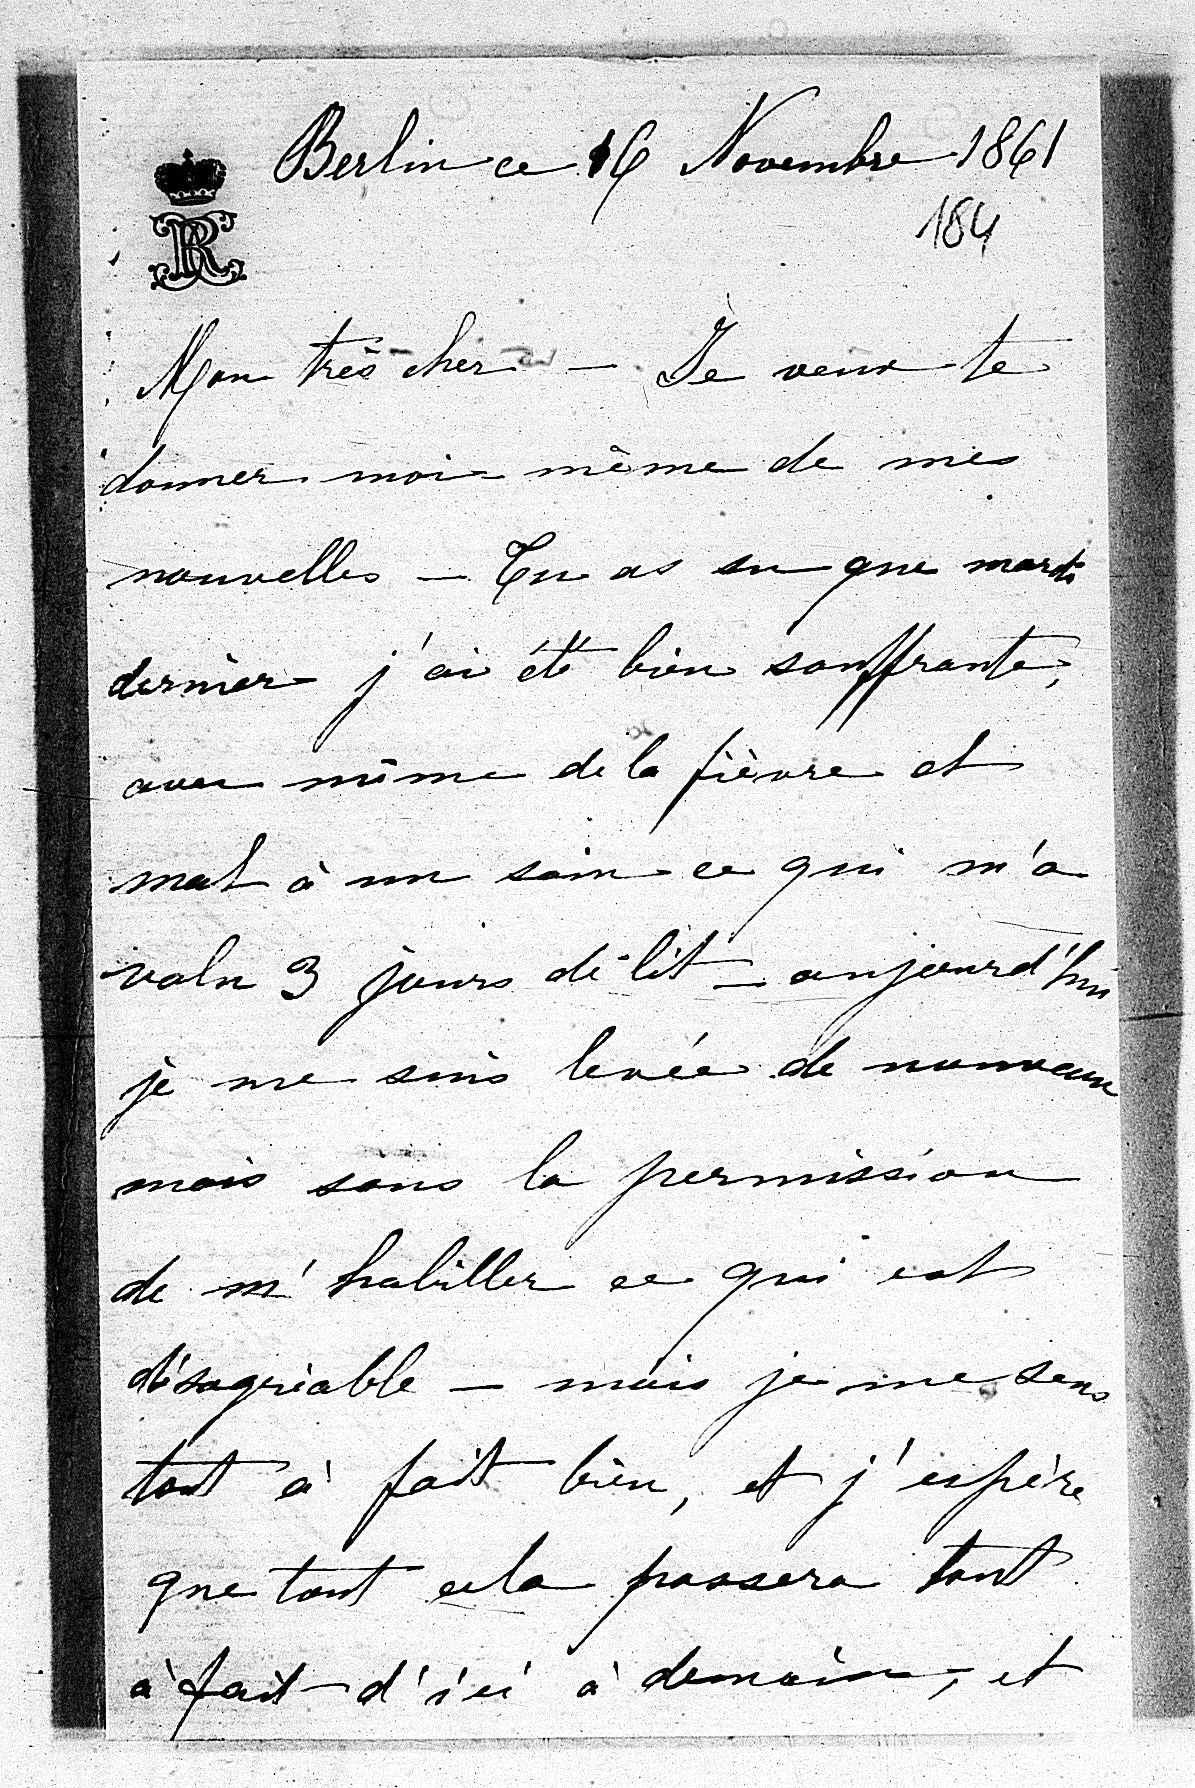 Berlin ce 16 Novembre 1861
184
Mon très cher – Je veux te
donner moi même de mes
nouvelles – Tu as su que mardi
dernier j'ai été bien souffrante,
avec même de la fièvre et
mal à un sein ce qui m'a
valu 3 jours de lit – aujourd'hui
je me suis levée de nouveau
mais sans la permission
de m'habiller ce qui est
désagréable – mais je me sens
tout à fait bien, et j'espère
que tout cela passera tout
à fait d'ici à demain, et